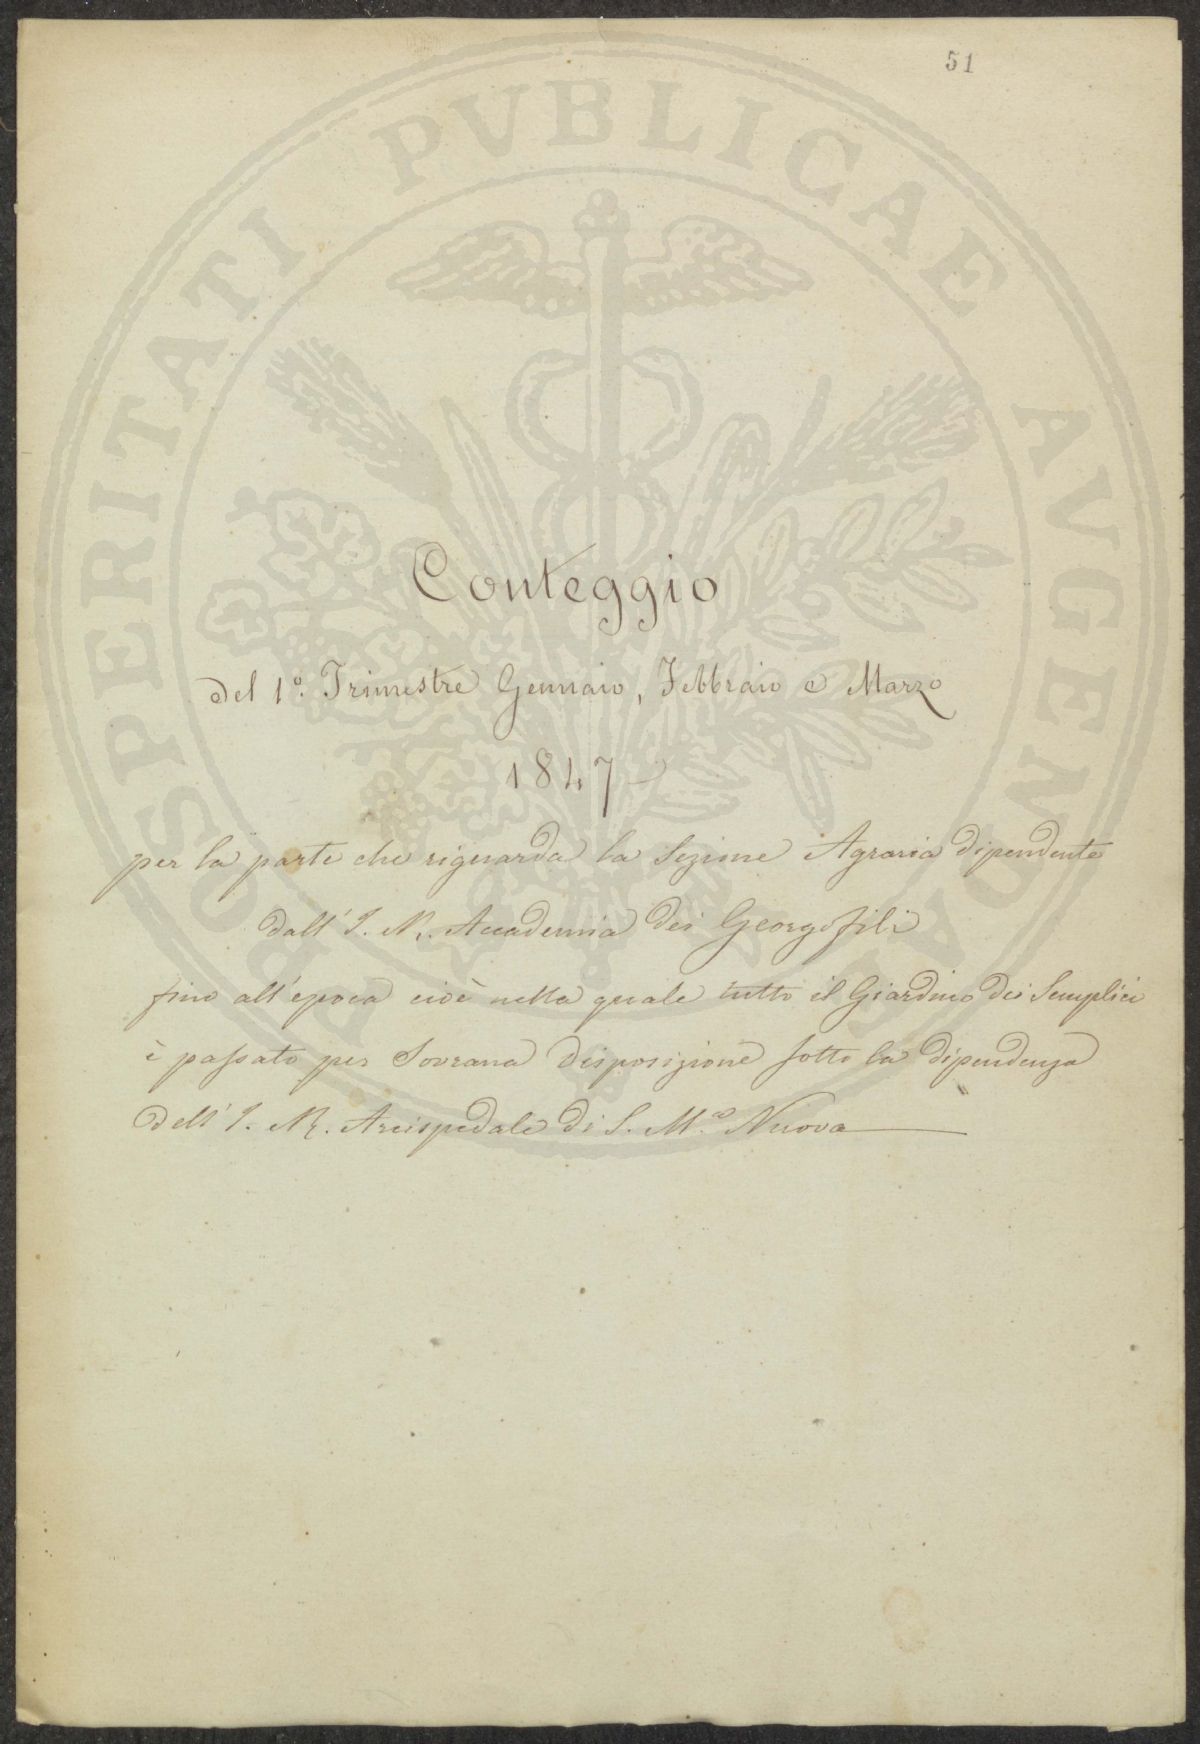 51
PROSPERITATI PVBLICAE AVGENDAE
Conteggio
del 1.º Trimestre Gennaio, Febbraio e Marzo
1847
per la parte che riguarda la Sezione Agraria dipendente
dall' I. R. Accademia dei Georgofili
fino all'epoca cioè nella quale tutto il Giardino dei Semplici
è passato per Sovrana disposizione sotto la dipendenza
dell' I. R. Arcispedale di S. M.ª Nuova